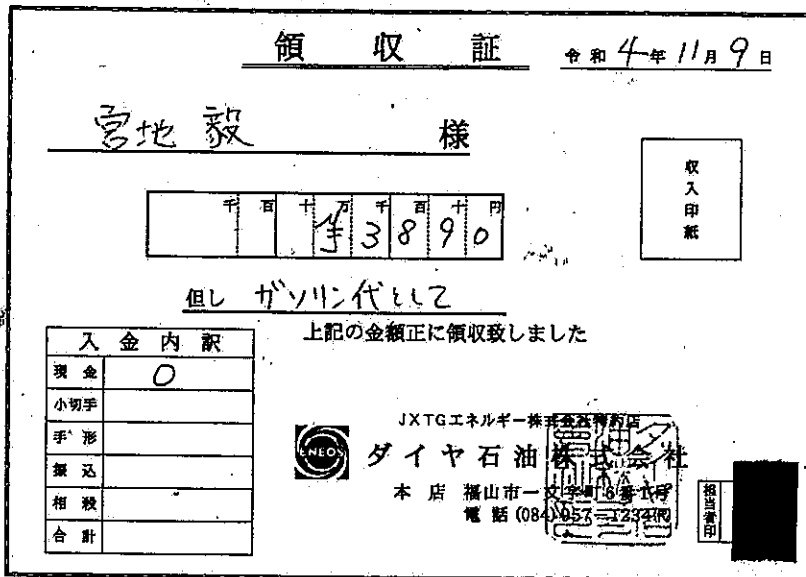 領収証
令和4年11月9日
宮地 毅 様
収入印紙
千百十万千百十円
¥3890
但し ガソリン代として
上記の金額正に領収致しました
入金内訳
現金 〇
小切手
手形
振込
相殺
合計
JXTGエネルギー株式会社特約店
ENEOS
ダイヤ石油株式会社
本店 福山市一文字町6番1号
電話(084)957-1234(代)
担当者印